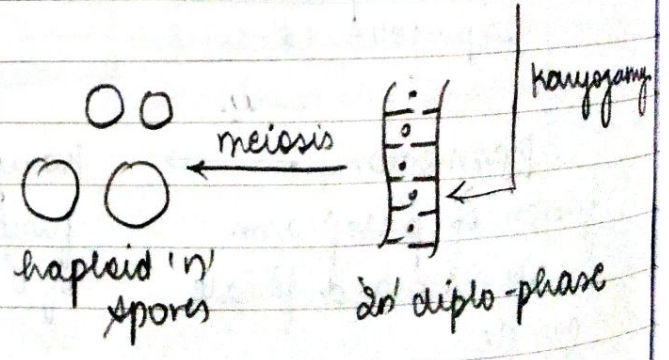 karyogamy
meiosis
haploid 'n'
spores
2n' diplo-phase